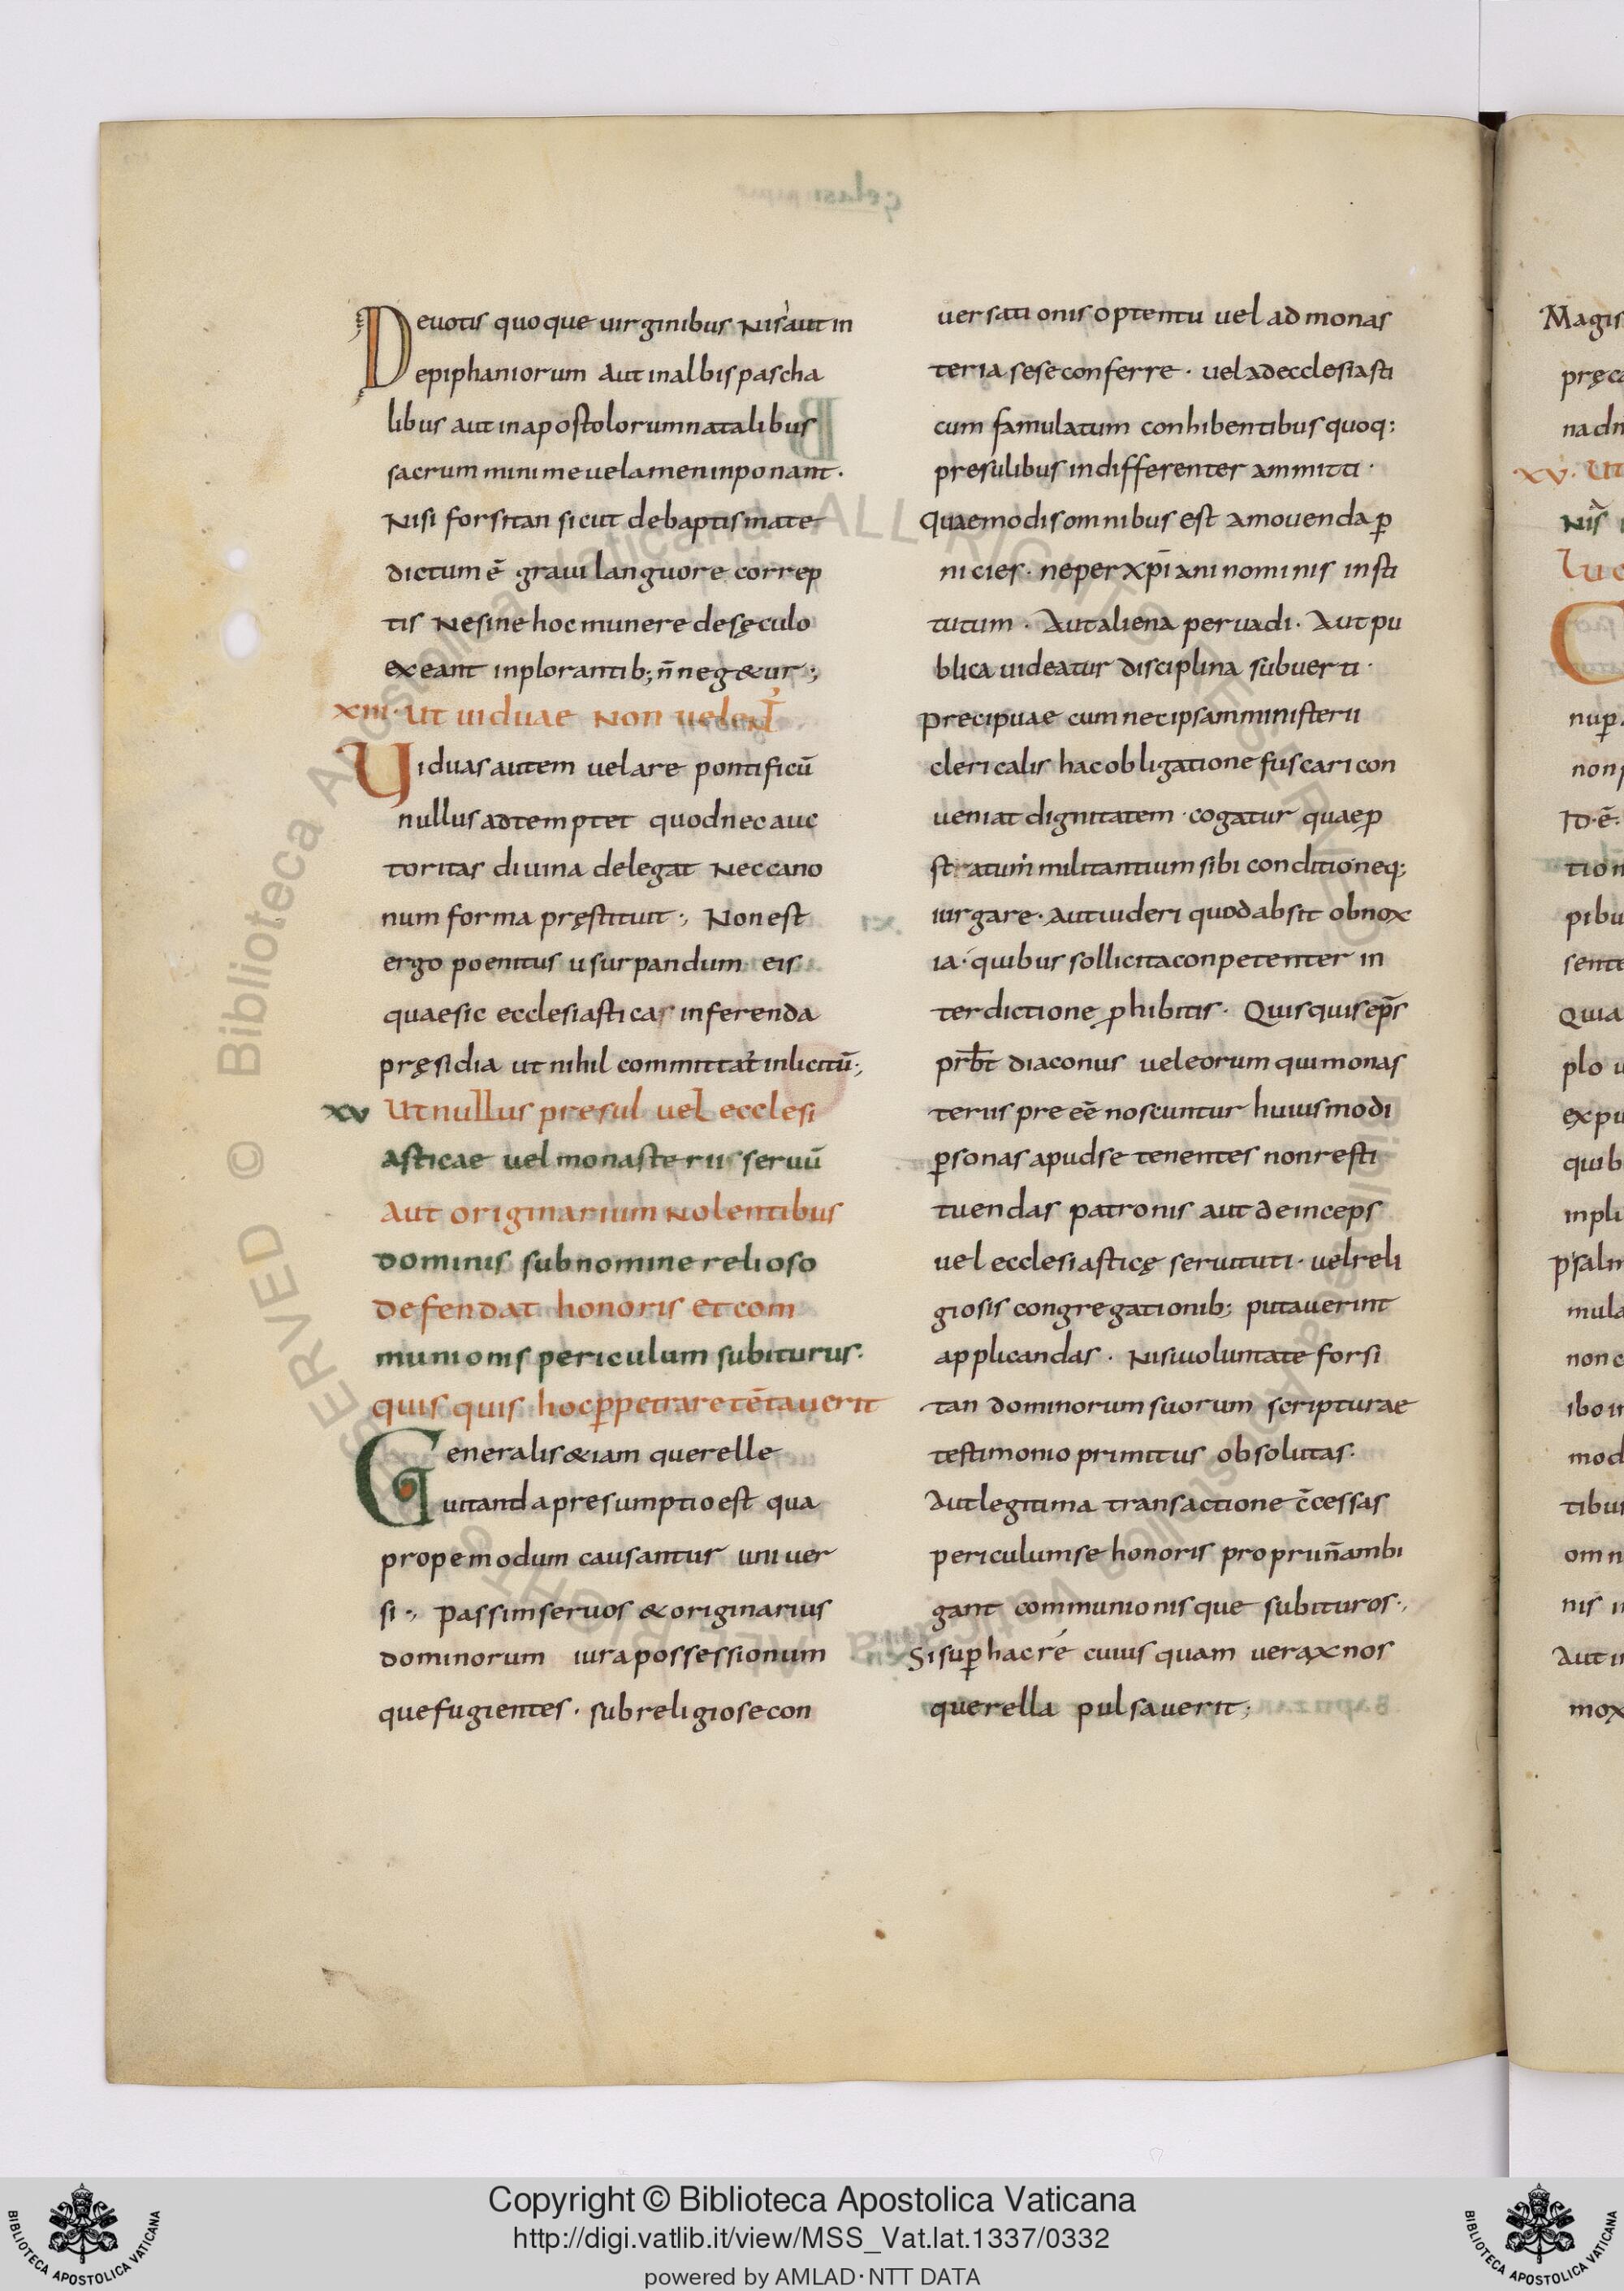 Deuotis quoque uirginibus Nisi aut in
epiphaniorum aut in albis pascha
libus aut in apostolorum natalibus
sacrum minime uelamen inponant.
Nisi forsitan sicut de baptismate
dictum ē graui languore correp
tis Ne sine hoc munere de sęculo
exeant inplorantib; n̄ neg&ur;
Uiduas autem uelare pontificū
nullus adtemptet quod nec auc
toritas diuina delegat Nec cano
num forma pręstituit; Non est
ergo poenitus usurpandum eis
quae sic ecclesiasticas inferenda
pręsidia ut nihil committat inlicitū;
XV Ut nullus presul uel ecclesi
asticae uel monasterii seruū
Aut originarium Nolentibus
dominis sub nomine relioso
defendat honoris et com
munionis periculum subiturus.
quis quis hoc ꝑpetrare tētauerit
Generalis &iam querelle
uitanda presumptio est qua
propemodum causantur uniuer
si; passim seruos & originarius
dominorum iura possessionum
que fugientes. sub religiose con
uersationis optentu uel ad monas
teria sese conferre. uel ad ecclesiasti
cum famulatum conhibentibus quoq;
presulibus indifferenter ammitti.
Quae modis omnibus est amouenda ꝑ
nicies. ne per xp̄iani nominis insti
tutum. Aut aliena peruadi. Aut pu
blica uideatur disciplina subuerti.
Precipuae cum nec ipsam ministerii
clericalis hac obligatione fuscari con
ueniat dignitatem. cogatur quae ꝓ
stratum militantium sibi conditioneq;
iurgare. aut uideri quod absit obnox
ia. quibus sollicita conpetenter in
terdictione ꝓhibitis. Quisquis ep̄s
prb̄t diaconus uel eorum qui monas
teriis pre eē noscuntur huiusmodi
ꝑsonas apud se tenentes non resti
tuendas patronis aut deinceps
uel ecclesiasticę seruituti. uel reli
giosis congregationib; putauerint
applicandas. Nisi uoluntate forsi
tan dominorum suorum scripturae
testimonio primitus obsolutas.
Aut legitima transactione c̄cessas
periculum se honoris proprii n̄ ambi
gant communionisque subituros;
Si suꝑ hac ré cuius quam uerax nos
querella pulsauerit;
Copyright © Biblioteca Apostolica Vaticana
http://digi.vatlib.it/view/MSS_Vat.lat.1337/0332
powered by AMLAD·NTT DATA
BIBLIOTECA APOSTOLICA VATICANA
BIBLIOTECA APOSTOLICA VATICANA